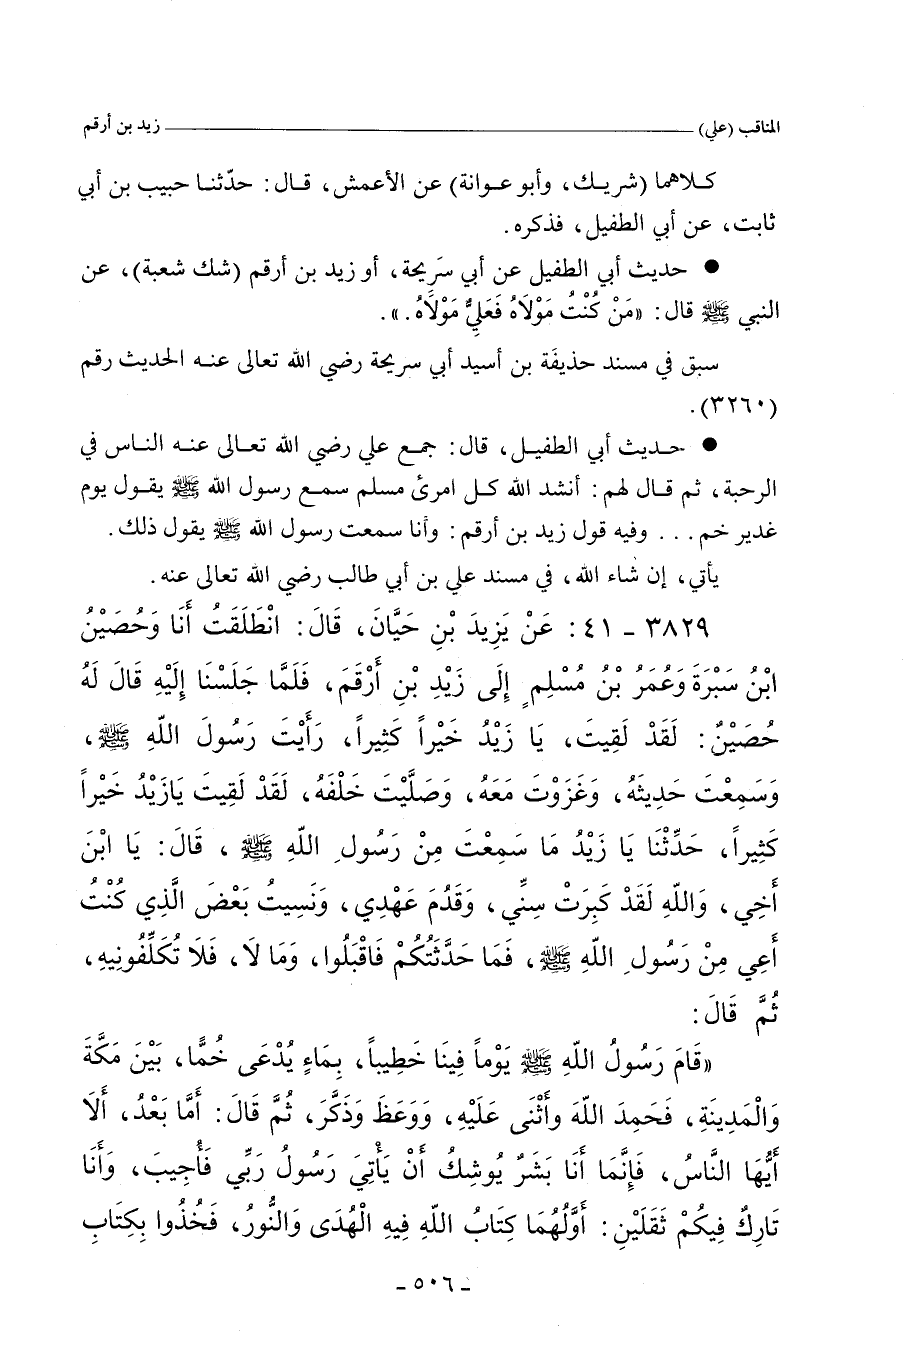 المناقب (علي) زيد بن أرقم
كلاهما (شريك، وأبو عوانة) عن الأعمش، قال: حدّثنا حبيب بن أبي
ثابت، عن أبي الطفيل، فذكره.
● حديث أبي الطفيل عن أبي سَرِيحة، أو زيد بن أرقم (شك شعبة)، عن
النبي ﷺ قال: «مَنْ كُنْتُ مَوْلَاهُ فَعَلِيٌّ مَوْلَاهُ.».
سبق في مسند حذيفَة بن أسيد أبي سريحة رضي الله تعالى عنه الحديث رقم
(٣٢٦٠).
● حديث أبي الطفيل، قال: جمع علي رضي الله تعالى عنه الناس في
الرحبة، ثم قال لهم: أنشد الله كل امرئ مسلم سمع رسول الله ﷺ يقول يوم
غدير خم... وفيه قول زيد بن أرقم: وأنا سمعت رسول الله ﷺ يقول ذلك.
يأتي، إن شاء الله، في مسند علي بن أبي طالب رضي الله تعالى عنه.
٣٨٢٩ - ٤١: عَنْ يَزِيدَ بْنِ حَيَّانَ، قَالَ: انْطَلَقَتُ أَنَا وَحُصَيْنُ
ابْنُ سَبْرَةَ وَعُمَرُ بْنُ مُسْلِمٍ إِلَى زَيْدِ بْنِ أَرْقَمَ، فَلَمَّا جَلَسْنَا إِلَيْهِ قَالَ لَهُ
حُصَيْنٌ: لَقَدْ لَقِيتَ، يَا زَيْدُ خَيْراً كَثِيراً، رَأَيْتَ رَسُولَ اللّهِ ﷺ،
وَسَمِعْتَ حَدِيثَهُ، وَغَزَوْتَ مَعَهُ، وَصَلَّيْتَ خَلْفَهُ، لَقَدْ لَقِيتَ يَازَيْدُ خَيْراً
كَثِيراً، حَدِّثْنَا يَا زَيْدُ مَا سَمِعْتَ مِنْ رَسُولِ اللّهِ ﷺ، قَالَ: يَا ابْنَ
أَخِي، وَاللّهِ لَقَدْ كَبِرَتْ سِنِّي، وَقَدُمَ عَهْدِي، وَنَسِيتُ بَعْضَ الَّذِي كُنْتُ
أَعِي مِنْ رَسُولِ اللّهِ ﷺ، فَمَا حَدَّثْتُكُمْ فَاقْبَلُوا، وَمَا لَا، فَلَا تُكَلِّفُونِيهِ،
ثُمَّ قَالَ:
«قَامَ رَسُولُ اللّهِ ﷺ يَوْماً فِينَا خَطِيباً، بِمَاءٍ يُدْعَى خُمًّا، بَيْنَ مَكَّةَ
وَالْمَدِينَةِ، فَحَمِدَ اللّهَ وَأَثْنَى عَلَيْهِ، وَوَعَظَ وَذَكَّرَ، ثُمَّ قَالَ: أَمَّا بَعْدُ، أَلَا
أَيُّهَا النَّاسُ، فَإِنَّمَا أَنَا بَشَرٌ يُوشِكُ أَنْ يَأْتِيَ رَسُولُ رَبِّي فَأُجِيبَ، وَأَنَا
تَارِكٌ فِيكُمْ ثَقَلَيْنِ: أَوَّلُهُمَا كِتَابُ اللّهِ فِيهِ الْهُدَى وَالنُّورُ، فَخُذُوا بِكِتَابِ
- ٥٠٦ -